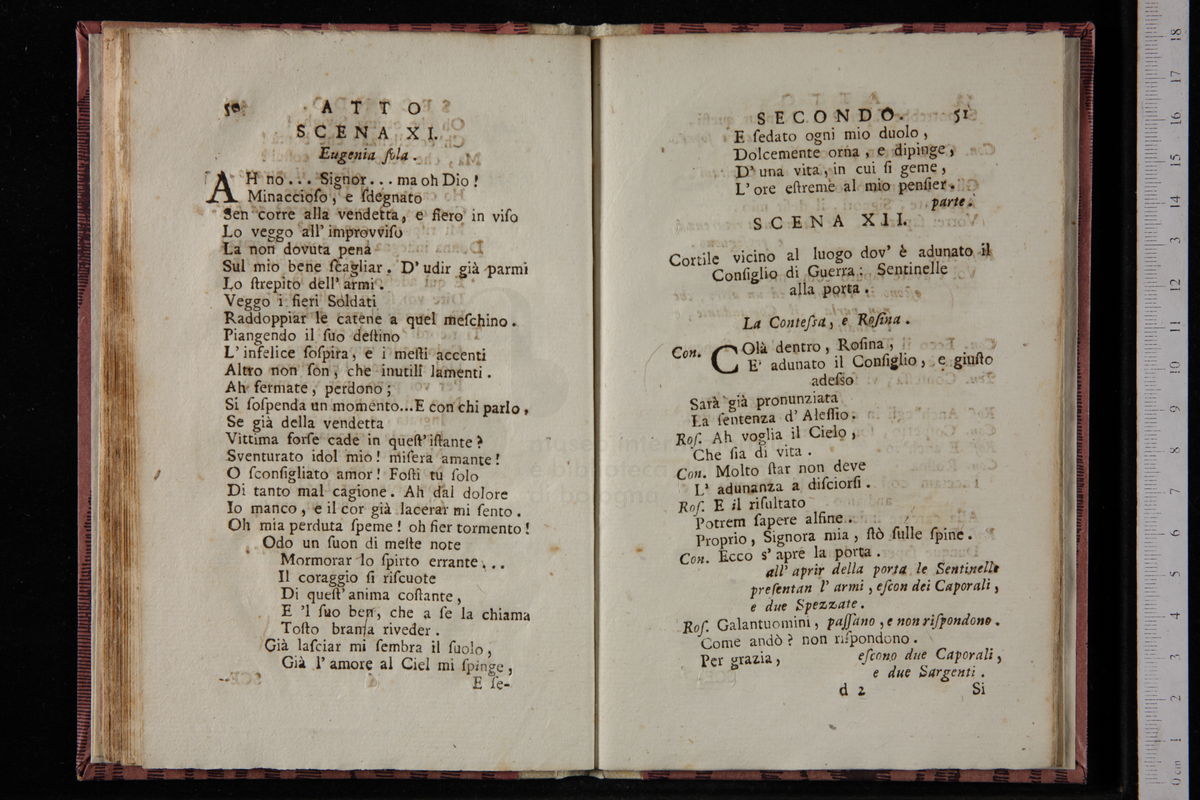 50 ATTO
SCENA XI.
Eugenia ſola.
AH no... Signor... ma oh Dio!
Minaccioſo, e ſdegnato
Sen corre alla vendetta, e fiero in viſo
Lo veggo all' improvviſo
La non dovuta pena
Sul mio bene ſcagliar. D' udir già parmi
Lo ſtrepito dell' armi.
Veggo i fieri Soldati
Raddoppiar le catene a quel meſchino.
Piangendo il ſuo deſtino
L' infelice ſoſpira, e i meſti accenti
Altro non ſon, che inutili lamenti.
Ah fermate, perdono;
Si ſoſpenda un momento...E con chi parlo,
Se già della vendetta
Vittima forſe cade in queſt' iſtante?
Sventurato idol mio! miſera amante!
O ſconſigliato amor! Foſti tu ſolo
Di tanto mal cagione. Ah dal dolore
Io manco, e il cor già lacerar mi ſento.
Oh mia perduta ſpeme! oh fier tormento!
Odo un ſuon di meſte note
Mormorar lo ſpirto errante...
Il coraggio ſi riſcuote
Di queſt' anima coſtante,
E 'l ſuo ben, che a ſe la chiama
Toſto brama riveder.
Già laſciar mi ſembra il ſuolo,
Già l' amore al Ciel mi ſpinge,
E ſe-
SECONDO. 51
E ſedato ogni mio duolo,
Dolcemente orna, e dipinge,
D' una vita, in cui ſi geme,
L' ore eſtreme al mio penſier.
parte.
SCENA XII.
Cortile vicino al luogo dov' è adunato il
Conſiglio di Guerra: Sentinelle
alla porta.
La Conteſsa, e Roſina.
Con. COlà dentro, Roſina,
E' adunato il Conſiglio, e giuſto
adeſso
Sarà già pronunziata
La ſentenza d' Aleſſio.
Roſ. Ah voglia il Cielo,
Che ſia di vita.
Con. Molto ſtar non deve
L' adunanza a diſciorſi.
Roſ. E il riſultato
Potrem ſapere alfine.
Proprio, Signora mia, ſtò ſulle ſpine.
Con. Ecco s' apre la porta.
all' aprir della porta le Sentinelle
preſentan l' armi, eſcon dei Caporali,
e due Spezzate.
Roſ. Galantuomini, paſſano, e non riſpondono.
Come andò? non riſpondono.
Per grazia, eſcono due Caporali,
e due Sargenti.
d 2 Si